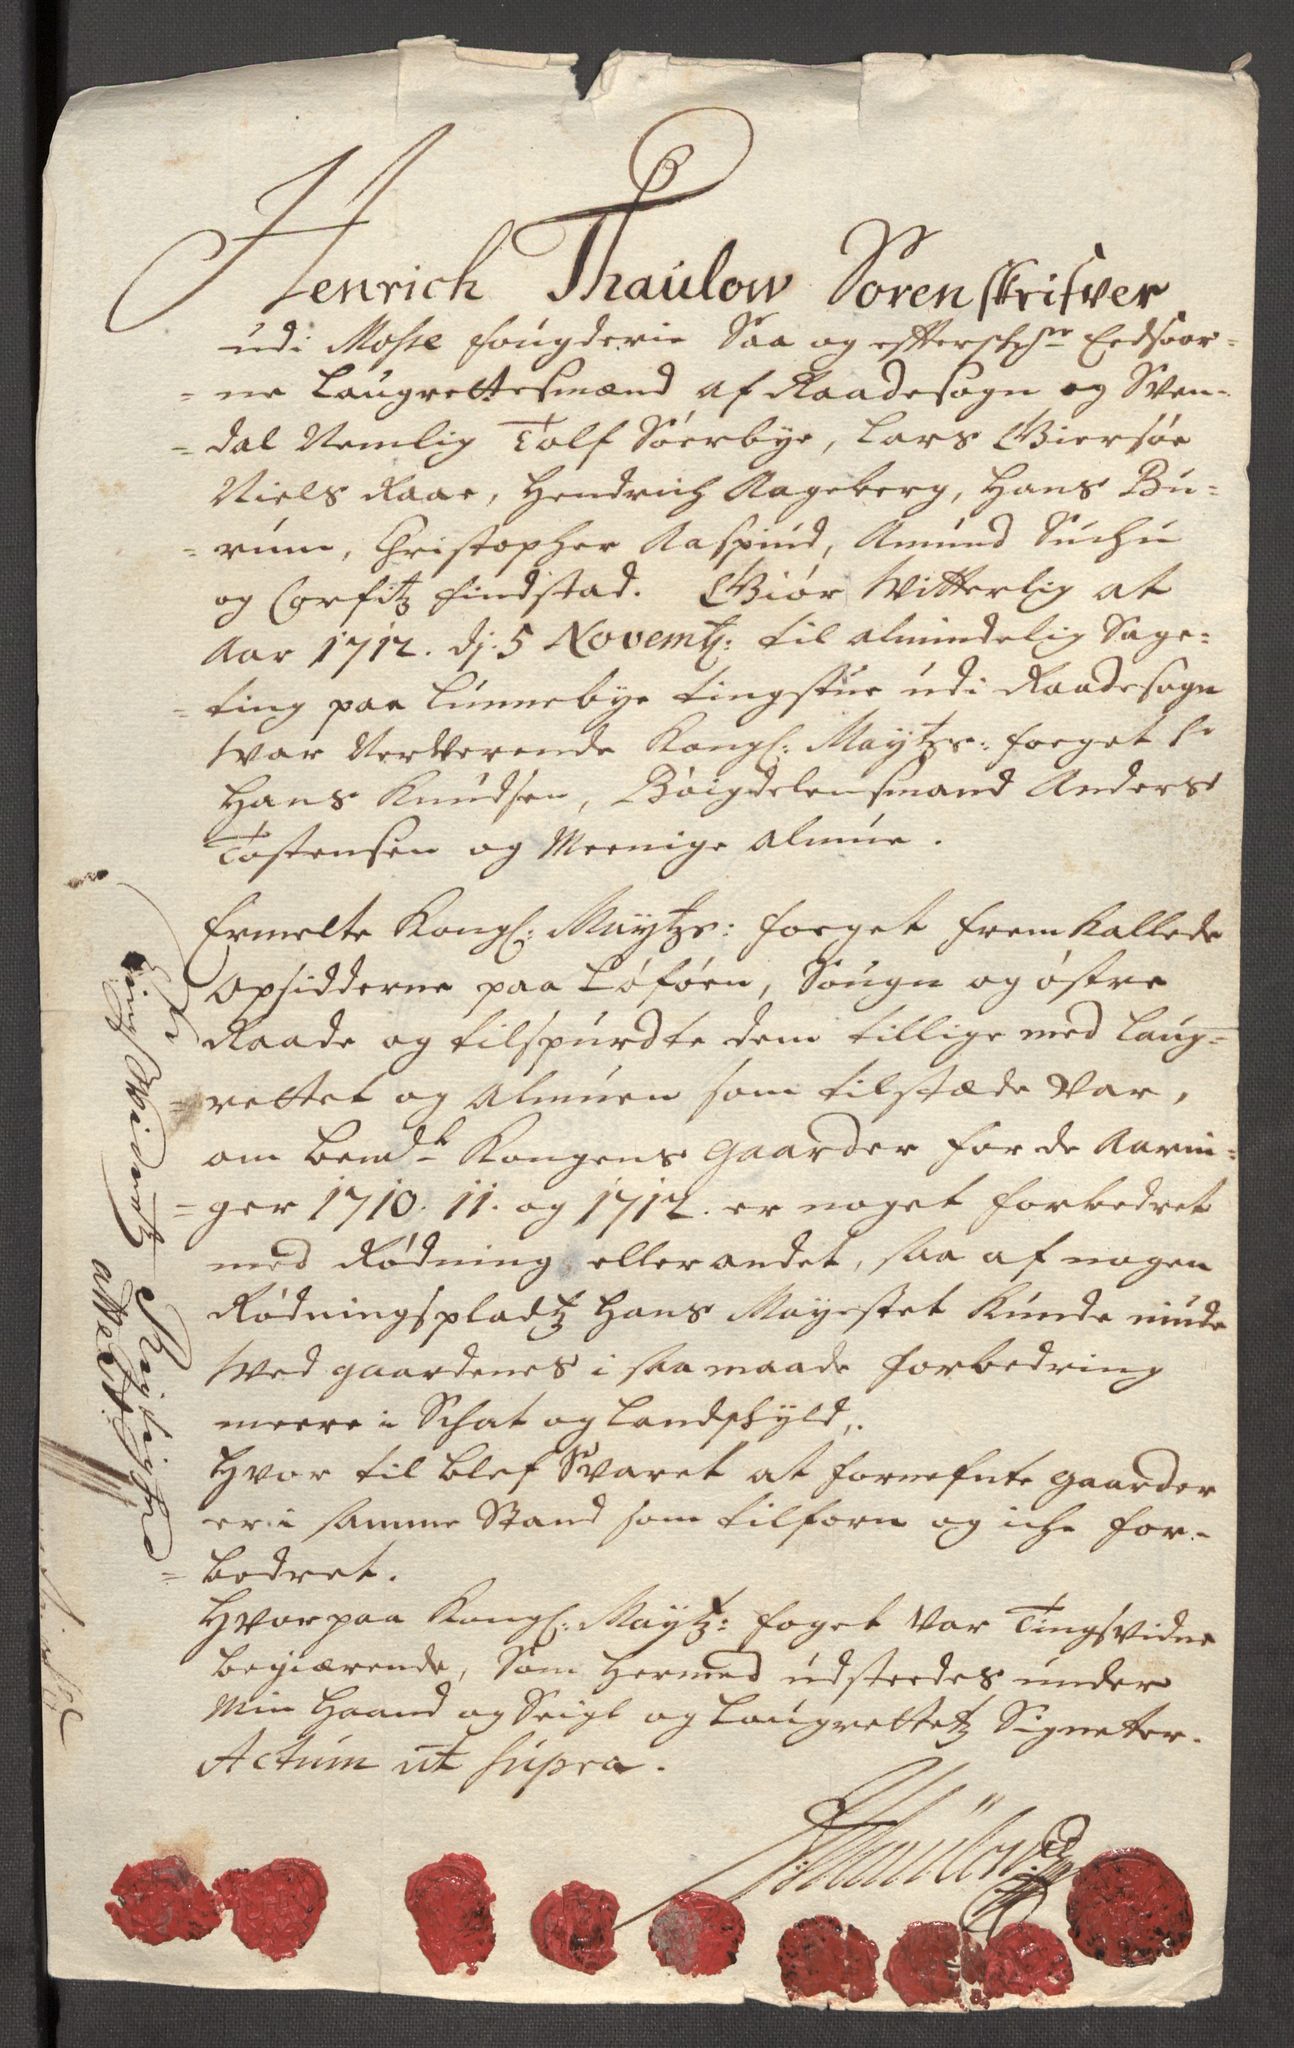 Henrich Thaulow Sorenskrifver
udi Mosse fougderie Saa og effterschr Eedsoor-
-ne Laugrettesmænd af Raadesogn og Sven-
-dal Nemlig Tolf Sóerbye, Lars Giersóe
Niels Raae, Hendrich Aageberg, Hans Bu-
-rum, Christopher Raspind, Amund Suchu
og Corfitz Findstad. Giör Vitterlig at
Aar 1712. dj. 5 Novemb: til almindelig Sage-
-ting paa Lunnebye tingstue udi Raadesogn
Var Nerverende Kongl: Maytzs: foeget Sr
Hans Knudsen, Bóigdelensmand Anders
Tostensen og Meenige Almúe.
Ermelte Kongl: Maytzs: foeget fremkallede
Opsidderne paa Lófóen, Sougn og óstre
Raade og tilspurdte dem tillige med Laug-
-rettet og Almúen som tilstæde var,
om bemdte Kongens gaarder for de Aarin-
-ger 1710. 11. og 1712. er noget forbedret
med Rödning eller andet, saa af nogen
Rödningspladtz Hans Mayestet Kunde niude
Ved gaardenes i saa maade forbedring
meere i Schat og Landskyld,.
Hvor til blef Svaret at fornefnte gaarder
er i samme Stand som tilforn og iche for-
-bedret.
Hvorpaa Kongl: Maytz: foget var Tingsvidne
begiærende, Som hermed udsteedes under
Min Haand og Seigl og Laugrettetz Signeter.
Actum ut supra.
HThaulow